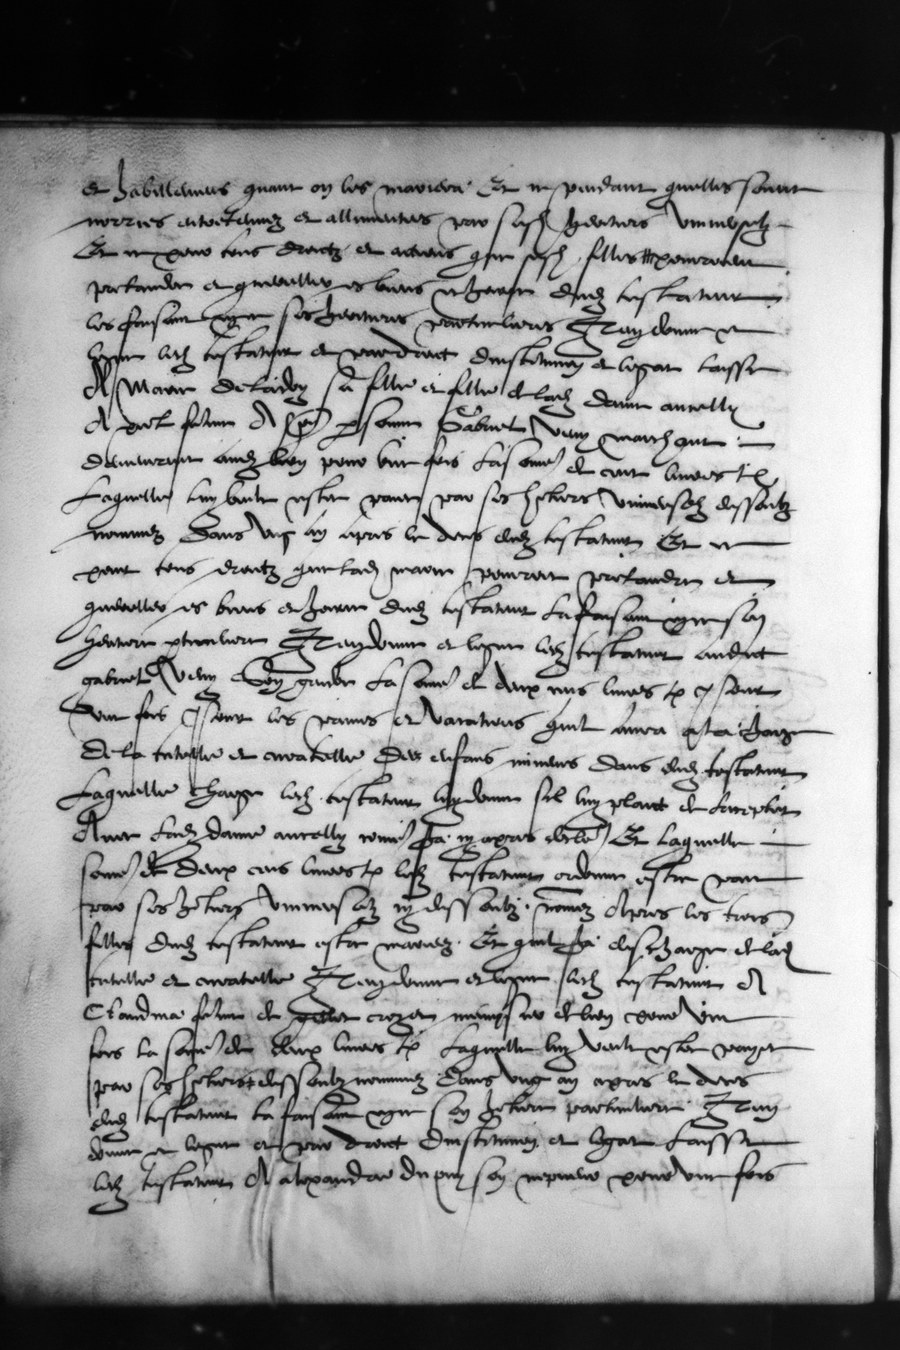 et habillemens quant on les mariera Et ce pendant quelles soient
norries entretenues et allimentees par sesd heretiers universelz
Et ce pour tous droictz et actions que sesd filles pourroient
pretandre et quereller es biens et heoirie dud testateur
les faisant ses heretieres particulieres Item donne et
legue led testateur et par droict dinstitution et legat laisse
A Marie sa fille et fille de lad dame anthelly
A present femme A personne Gabriel marchant
demeurant aud lieu pour une fois la somme de cent livres tz
Laquelle luy veult estre payee par ses heritiers universelz dessoubz
nommez dans ung an apres le deces dud testateur Et ce
pour tous droictz que lad marie pourroit pretandre et
quereller es biens et heoirie dud testateur la faisant son
heretiere particuliere Item donne et legue led testateur aud
gabriel son gendre La somme de deux cens livres tz pour
une fois pour les peines et vacations quil aura a la charge
De la tutelle et curatelle des enfans mineurs dans dud testateur
Laquelle charge led testateur luy donne sil luy plaict de laccepter
Avec lad dame anthelly comme sera cy apres declere Et laquelle
somme de Deux cens livres tz led testateur ordonne estre paiee
par ses heritiers universelz cy dessoubz nommez Apres les trois
filles dud testateur estre mariez Et quil sera deschairge de lad
tutelle et curatelle Item donne et legue led testateur A
Claudine femme de dud lieu pour une
fois la somme de deux livres tz Laquelle luy veult estre payee
par ses heritiers dessoubz nommez dans ung an apres le deces
dud testateur la faisant son heritiere particuliere Item
donne et legue et par droict dinstitution et legat Laisse
led testateur A alexandre dupuy son nepveu pour une fois